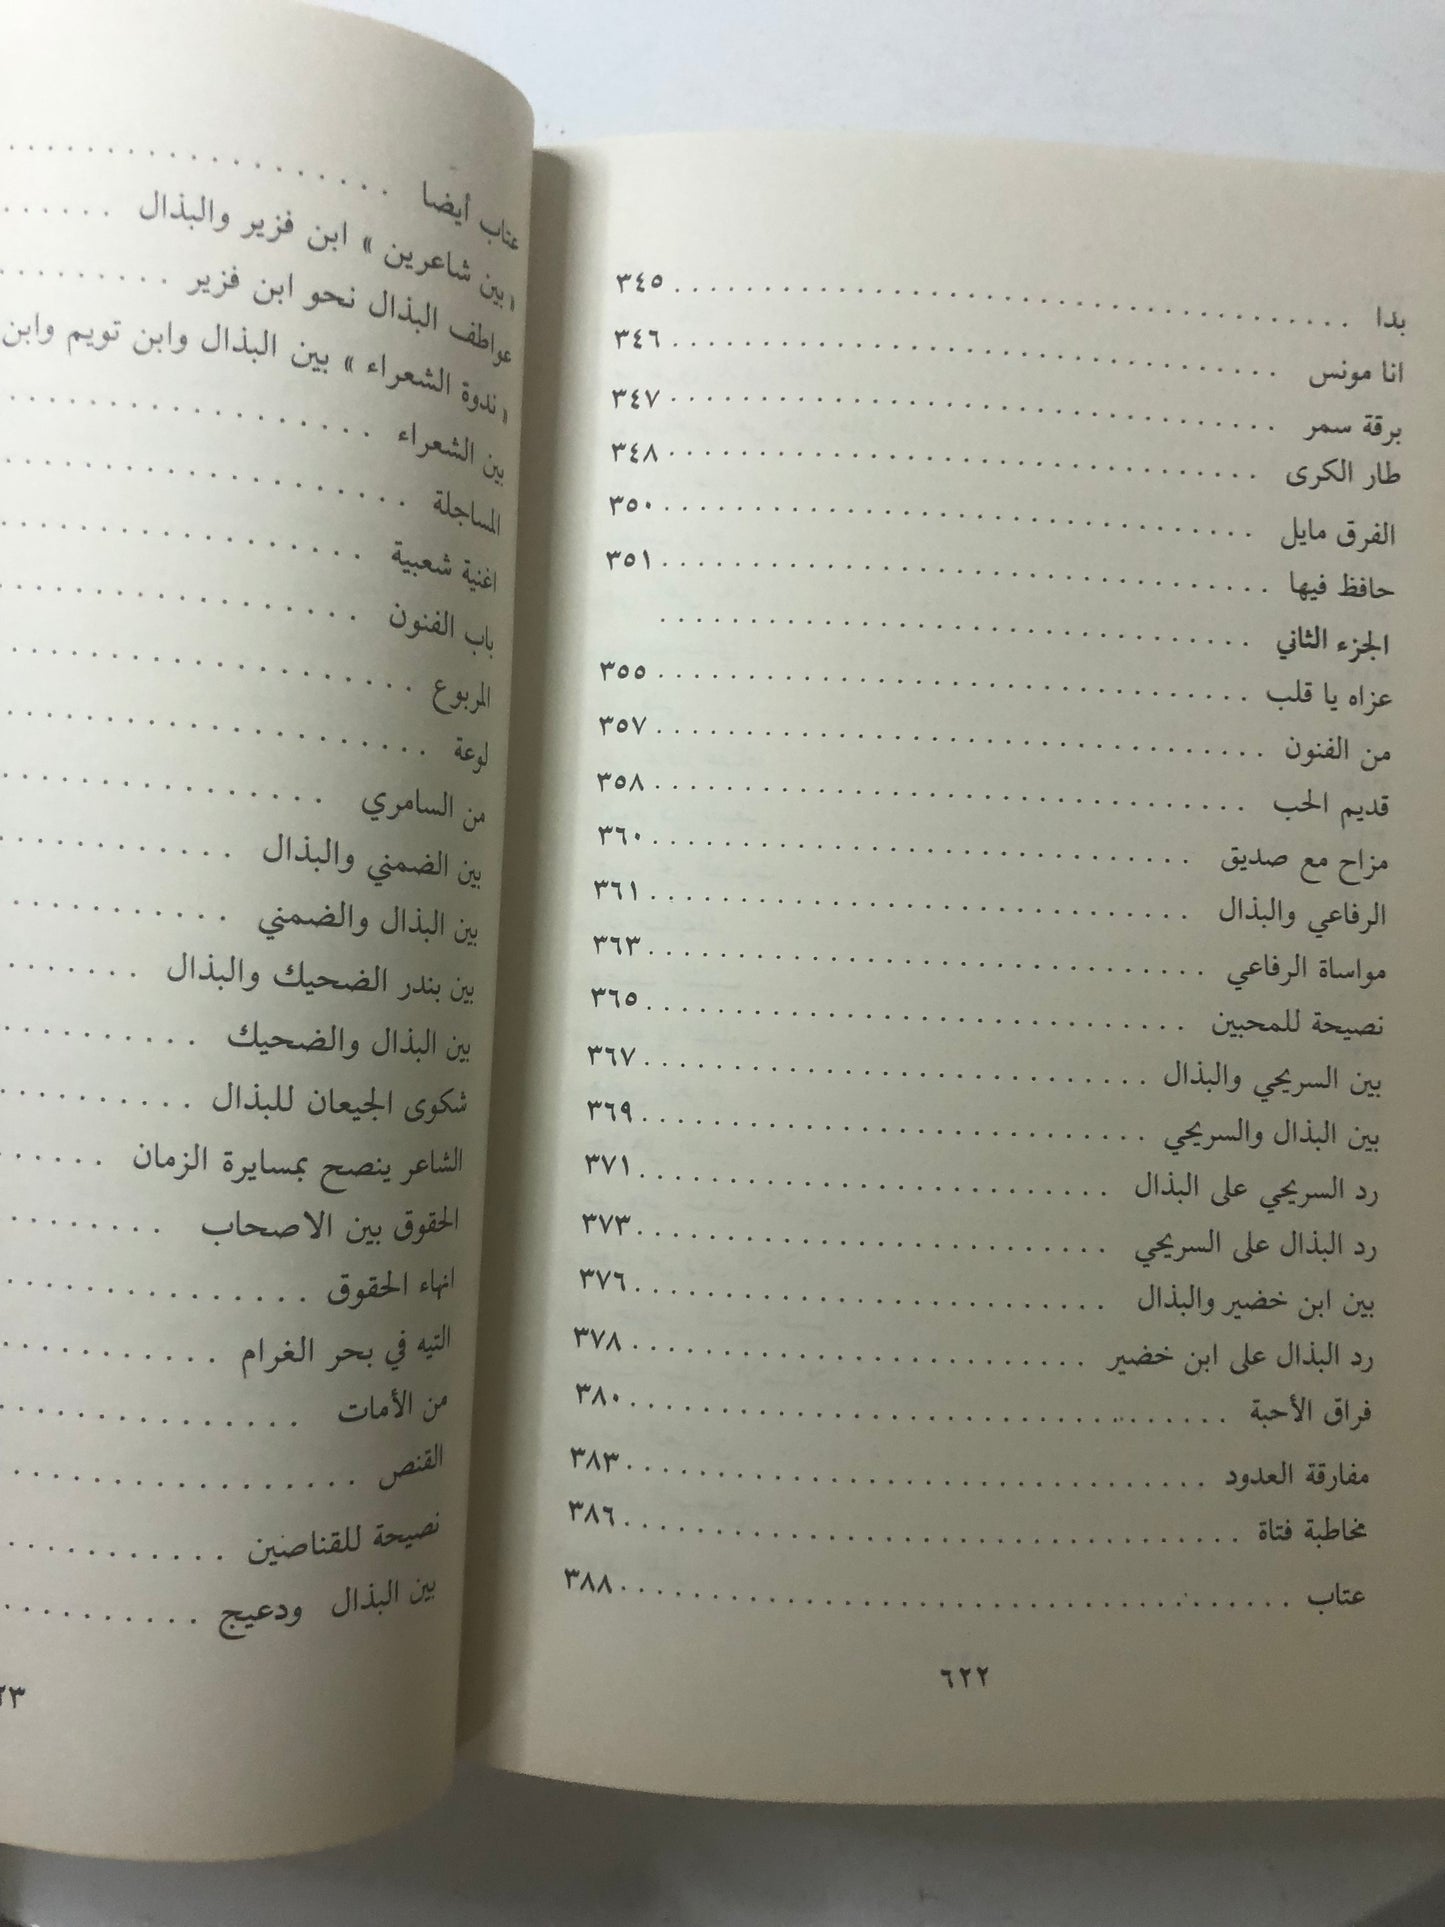 بدا ........ ٣٤٥
انا مونس ........ ٣٤٦
برقة سمر ........ ٣٤٧
طار الكرى ........ ٣٤٨
الفرق مايل ........ ٣٥٠
حافظ فيها ........ ٣٥١
الجزء الثاني ........
عزاه يا قلب ........ ٣٥٥
من الفنون ........ ٣٥٧
قديم الحب ........ ٣٥٨
مزاح مع صديق ........ ٣٦٠
الرفاعي والبذال ........ ٣٦١
مواساة الرفاعي ........ ٣٦٣
نصيحة للمحبين ........ ٣٦٥
بين السريحي والبذال ........ ٣٦٧
بين البذال والسريحي ........ ٣٦٩
رد السريحي على البذال ........ ٣٧١
رد البذال على السريحي ........ ٣٧٣
بين ابن خضير والبذال ........ ٣٧٦
رد البذال على ابن خضير ........ ٣٧٨
فراق الأحبة ........ ٣٨٠
مفارقة العدود ........ ٣٨٣
مخاطبة فتاة ........ ٣٨٦
عتاب ........ ٣٨٨
٦٢٢
عتاب أيضا ........
« بين شاعرين » ابن فزير والبذال ........
عواطف البذال نحو ابن فزير ........
« ندوة الشعراء » بين البذال وابن تويم وابن
بين الشعراء ........
المساجلة ........
اغنية شعبية ........
باب الفنون ........
المربوع ........
لوعة ........
من السامري ........
بين الضمني والبذال ........
بين البذال والضمني ........
بين بندر الضحيك والبذال ........
بين البذال والضحيك ........
شكوى الجيعان للبذال ........
الشاعر ينصح بمسايرة الزمان ........
الحقوق بين الاصحاب ........
انهاء الحقوق ........
التيه في بحر الغرام ........
من الأمات ........
القنص ........
نصيحة للقناصين ........
بين البذال ودعيج ........
٢٣